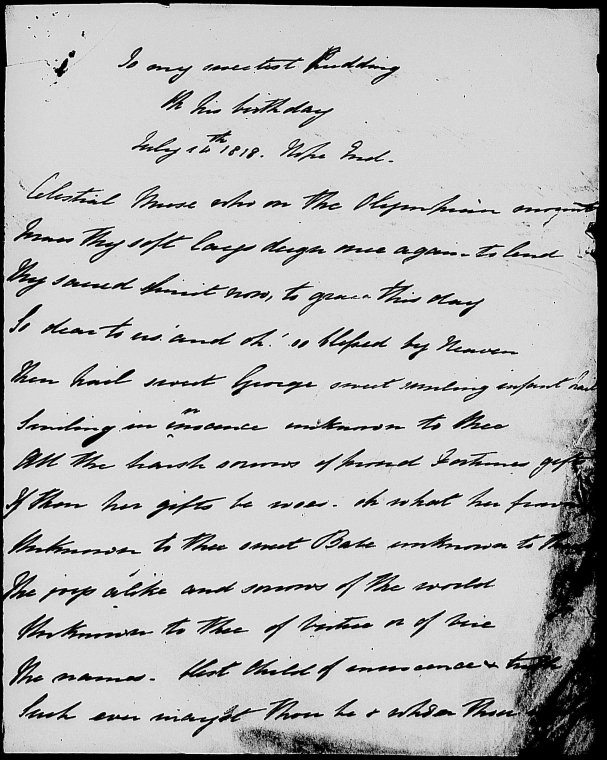 To my sweetest Pudding
On his birthday
July 14th 1818. Hope End.
Celestial Muse who on the Olympian mount
Tunes thy soft lays deign once again to lend
Thy sacred spirit now, to grace this day
So dear to us! and oh! so blessed by Heaven
Then hail sweet George sweet smiling infant hail
Smiling in inocence unknown to thee
All the harsh sorrows of proud Fortunes gift
If then her gifts be woes. oh what her frowns
Unknown to thee sweet Babe unknown to thee
The joys alike and sorrows of the world
Unknown to thee of Virtue or of Vice
The names. Blest Child of innocence & truth
Such ever mayst thou be & when thou